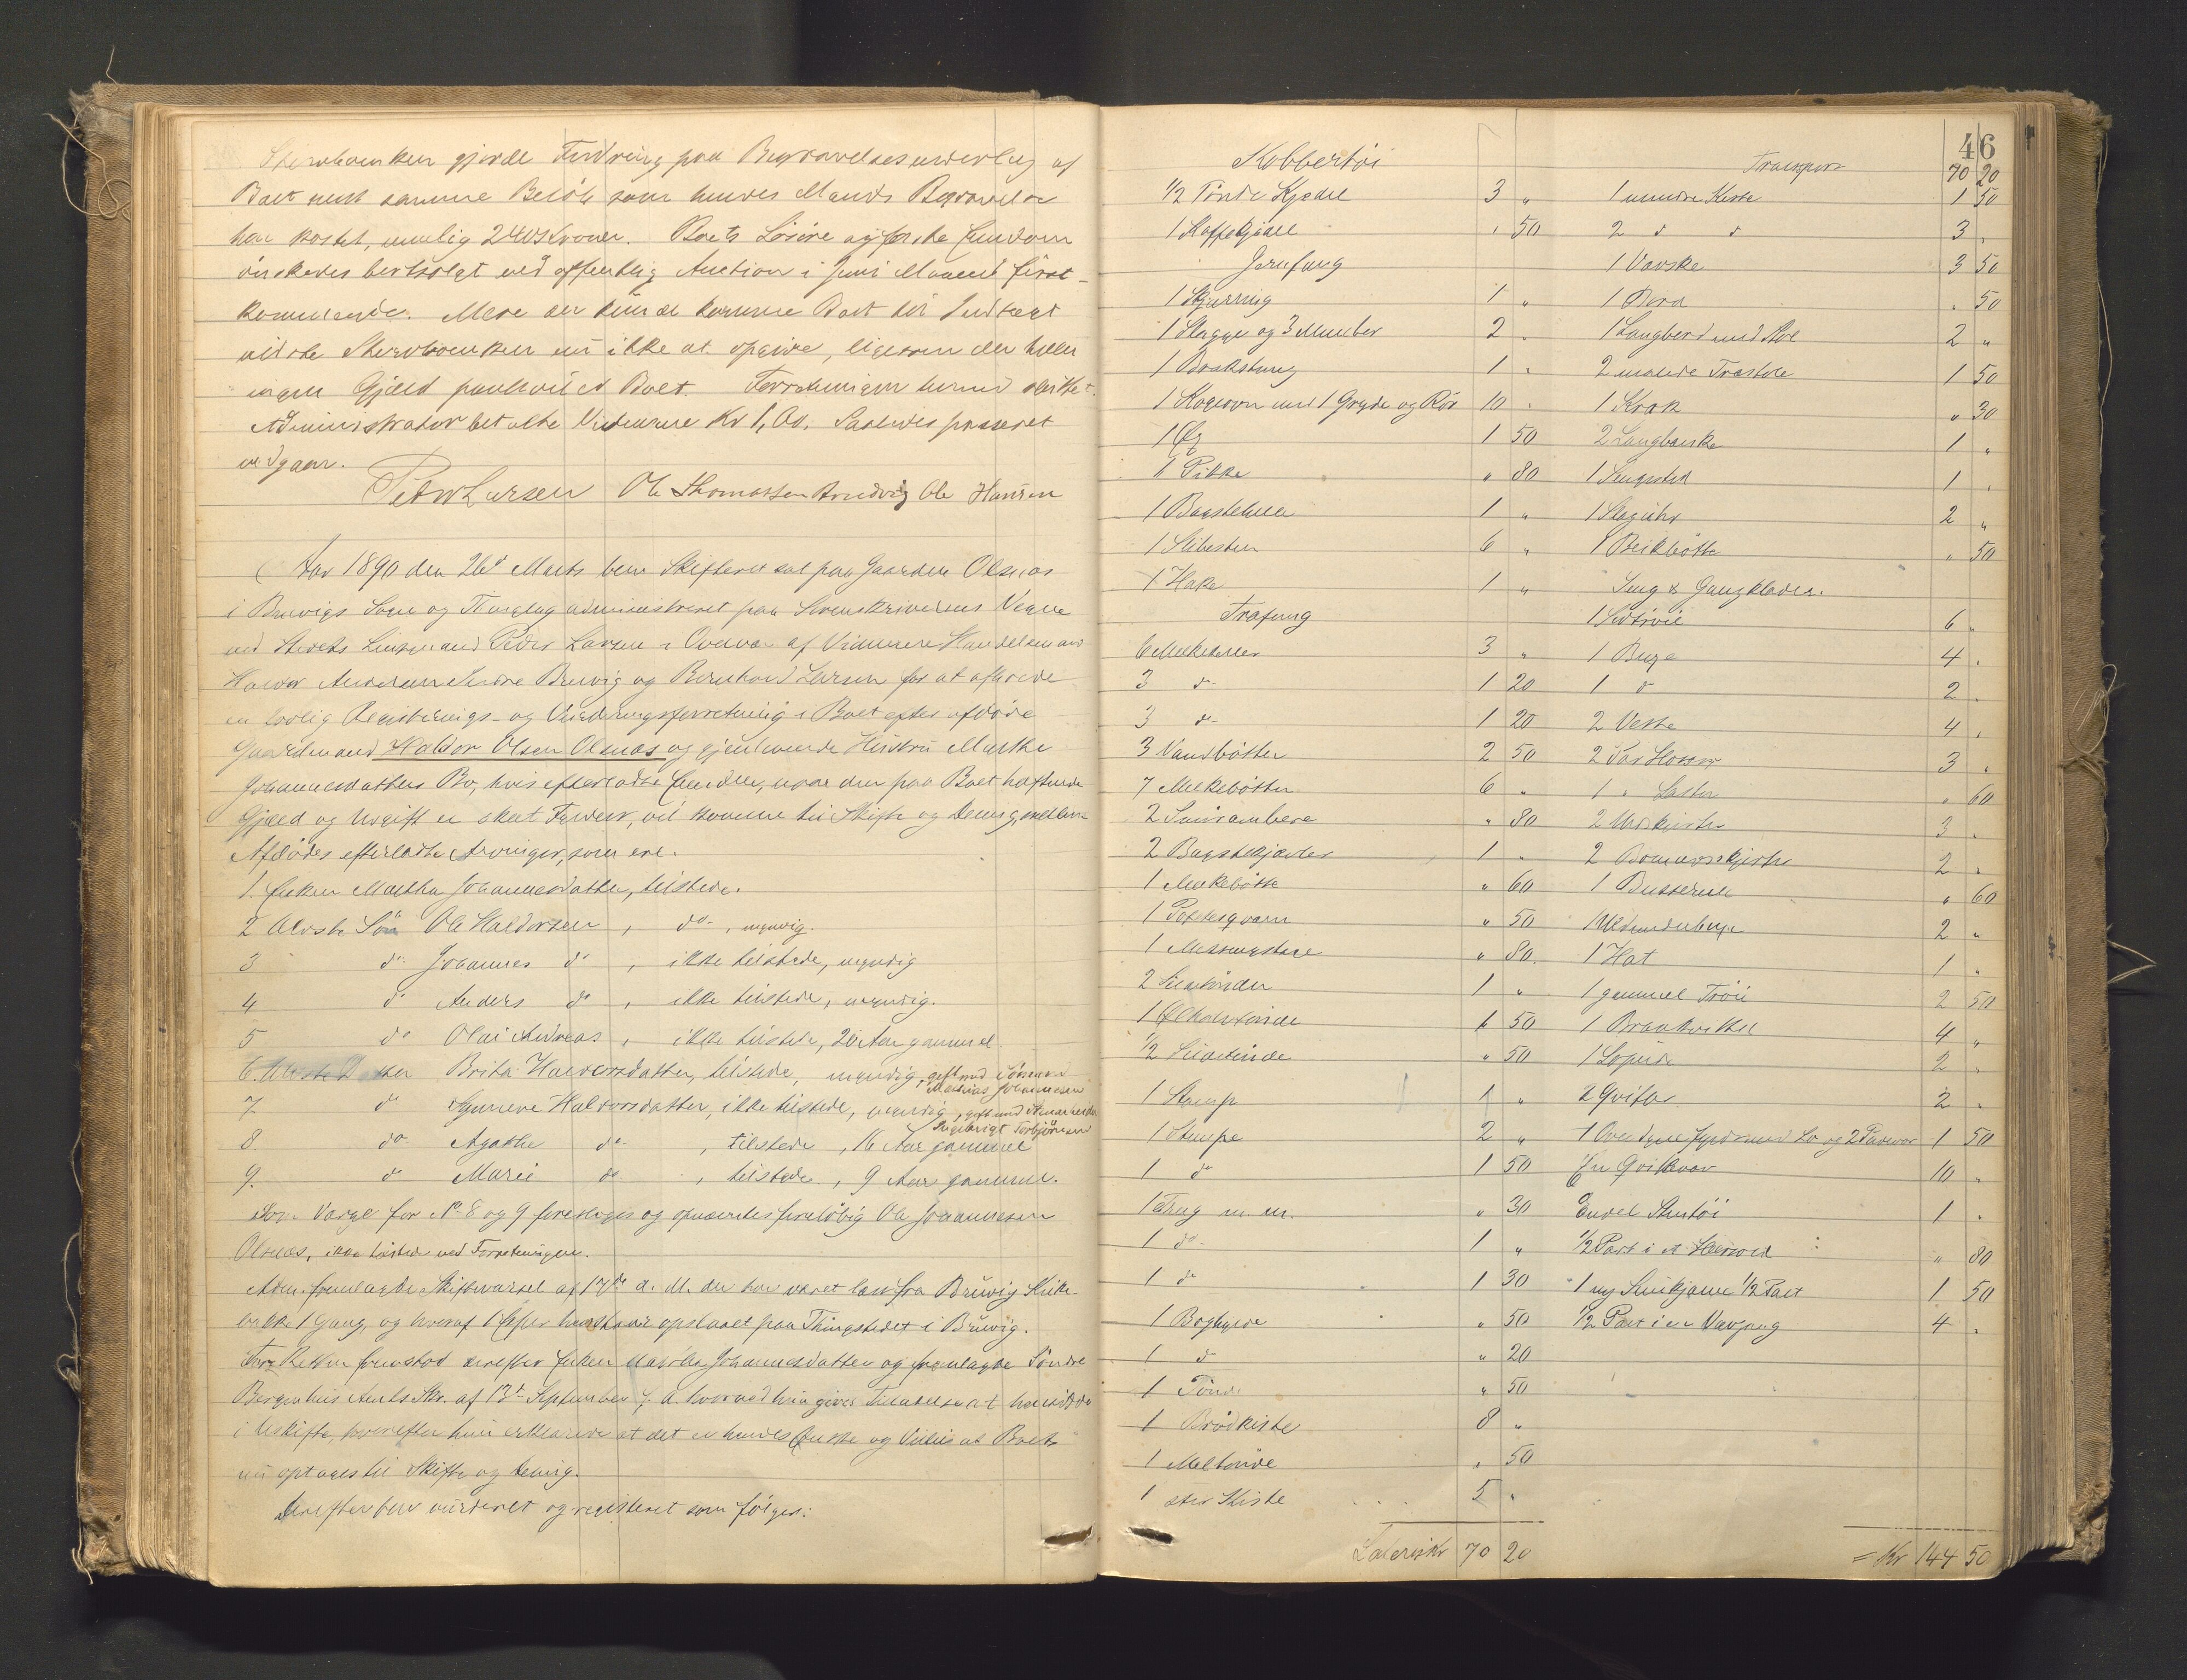 gjorde Fordring paa Begravelsesudlæg af
Boet med samme Beløb som hendes Mands Begravelse
har kostet, nemlig 240 Kroner. Boets Løsøre og faste Eiendom
ønskedes bortsolgt ved offentlig Auction i Juni Maaned først-
kommende. Mere der kunde komme Boet til Indtægt
vidste Sterboenken nu ikke at opgive, ligesom der heller
ingen Gjæld paahvilede Boet. Forretningen hermed sluttet.
Administrator betalte Vidnerne Kr 1,00. Saaledes passeret
vidgaar.
Peder Larsen Ole Thomassen Arndvig Ole Hansen
Aar 1890 den 26d Marts blev Skifteret sat paa Gaarden Olsnæs
i Bruvigs Sogn og Thinglag administreret paa Sorenskriverens Vegne
ved Stedets Lensmand Peder Larsen i Overvær af Vidnerne Handelsmand
Haldor Andersen Bruvig og Bernhard Larsen for at afholde
en lovlig Registrerings- og Vurderingsforretning i Boet efter afdøde
Gaardmand Haldor Olsen Olsnæs og gjenlevende Hustru Martha
Johannesdatters Bo, hvis efterladte Eiendele, naar den paa Boet hæftende
Gjæld og Udgift er skeet Fyldest, vil komme til Skifte og Deling mellem
Afdødes efterladte Arvinger, som ere.
1. Enken Martha Johannesdatter, tilstede.
2 Ældste Søn Ole Haldorsen, do, myndig.
3 do Johannes do, ikke tilstede, myndig
4 do Anders do, ikke tilstede, myndig.
5 do Olai Andreas, ikke tilstede, 20 Aar gammel
6. Ældste Datter Brita Haldorsdatter, tilstede, myndig, gift med Sømand
Mathias Johannesen
7 do Haldorsdatter, ikke tilstede, myndig, gift med
Torbjørnsen
8. do Agathe do, tilstede, 16 Aar gammel
9. do Marie do, tilstede, 9 Aar gammel.
Som Værge for No 8 og 9 foresloges og opnævntes foreløbig Ole Johannesen
Olsnæs, ikke tilstede ved Forretningen.
Adm. fremlagde Skiftevarsel af 17de d. M. der har været læst fra Bruvig Kirke-
bakke 1 Gang, og hvoraf 1 Exp har været opslaaet paa Thingstedet i Bruvig.
For Retten fremstod derefter Enken Martha Johannesdatter og fremlagde Søndre
Bergenhus Amts Skr. af 13d September f. A. hvorved hun gives Tilladelse at hensidde
i Uskifte, hvorefter hun erklærede at det er hendes Ønske og Villie at Boet
nu optages til Skifte og Deling.
Derefter blev vurderet og registreret som følger:
46
Kobbertøi
1/2 Tønde Kjedel 3 "
1 Kaffekjedel " 50
Jernfang
1 Skjæring 1 "
1 Slægge og 3 Miner 2 "
1 Brækstang 1 "
1 Kogeovn med 1 Gryde og Rør 10 "
1 Øx 1 50
1 Pikke " 80
1 Bagstehelle 1 "
1 Slibesten 6 "
1 Hake 1 "
Træfang
6 Melkekoller 3 "
3 do 1 20
3 do 1 20
3 Vandbøtter 2 50
7 Melkebøtter 6 "
2 Smørambere " 80
2 Bagstekjævler 1 "
1 Melkebøtte " 60
1 Potetesqvern " 50
1 Messingstage " 80
2 Sildtønder 1 "
1 Ølhalvtønde 1 50
1/2 Sildtønde " 50
1 Stamp 1 "
1 Stampe 2 "
1 do 1 50
1 Trug m. m. " 30
1 do 1 "
1 do 1 30
1 Boghylde " 50
1 do " 20
1 Tønde " 50
1 Brødkiste 8 "
1 Meltønde " 50
1 stor Kiste 5 "
Lateris Kr 70 20
Transport 70 20
1 mindre Kiste 1 50
2 d d 3 "
1 Vævske 3 50
1 Bord " 50
1 Langbord med Stol 2 "
2 malede Træstole 1 50
1 Krak " 30
2 Langbænke 1 "
1 Sengsted 1 "
1 Slaguhr 2 "
1 Beitbøtte " 50
Seng & Gangklæder.
1 6 "
1 Buxe 4 "
1 d 2 "
2 Veste 4 "
2 Par Hoser 3 "
1 " Laster " 60
2 Uldskjorter 3 "
2 Bomuldsskjorter 2 "
1 Busserul " 60
1 Uldunderbuxe 2 "
1 Hat 1 "
1 gammel Trøie 2 50
1 4 "
1 2 "
2 Qvitler 2 "
1 Overdyne fyldt med Lo og 2 Puder 1 50
En Qvilkvar 10 "
Endel Stentøi 1 "
1/2 Part i " 80
1 ny 1/2 Part 1 50
1/2 Part i en Vævgang 4 "
= Kr 144 50